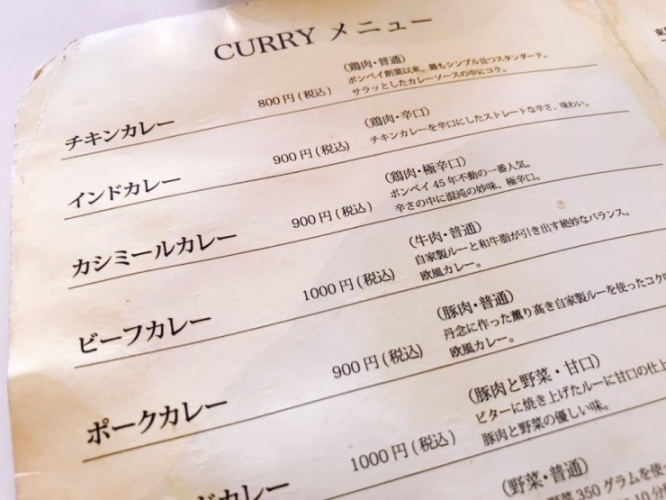 CURRY メニュー
チキンカレー 800円(税込) (鶏肉・普通)
ボンベイ創業以来、最もシンプル且つスタンダード。
サラッとしたカレーソースの中にコク。
インドカレー 900円(税込) (鶏肉・辛口)
チキンカレーを辛口にしたストレートな辛さ、味わい。
カシミールカレー 900円(税込) (鶏肉・極辛口)
ボンベイ45年不動の一番人気。
辛さの中に混沌の妙味、極辛口。
ビーフカレー 1000円(税込) (牛肉・普通)
自家製ルーと和牛脂が引き出す絶妙なバランス。
欧風カレー。
ポークカレー 900円(税込) (豚肉・普通)
丹念に作った薫り高き自家製ルーを使ったコク
欧風カレー。
ドカレー 1000円(税込) (豚肉と野菜・甘口)
ビターに焼き上げたルーに甘口の仕上
豚肉と野菜の優しい味。
(野菜・普通)
350グラムを使